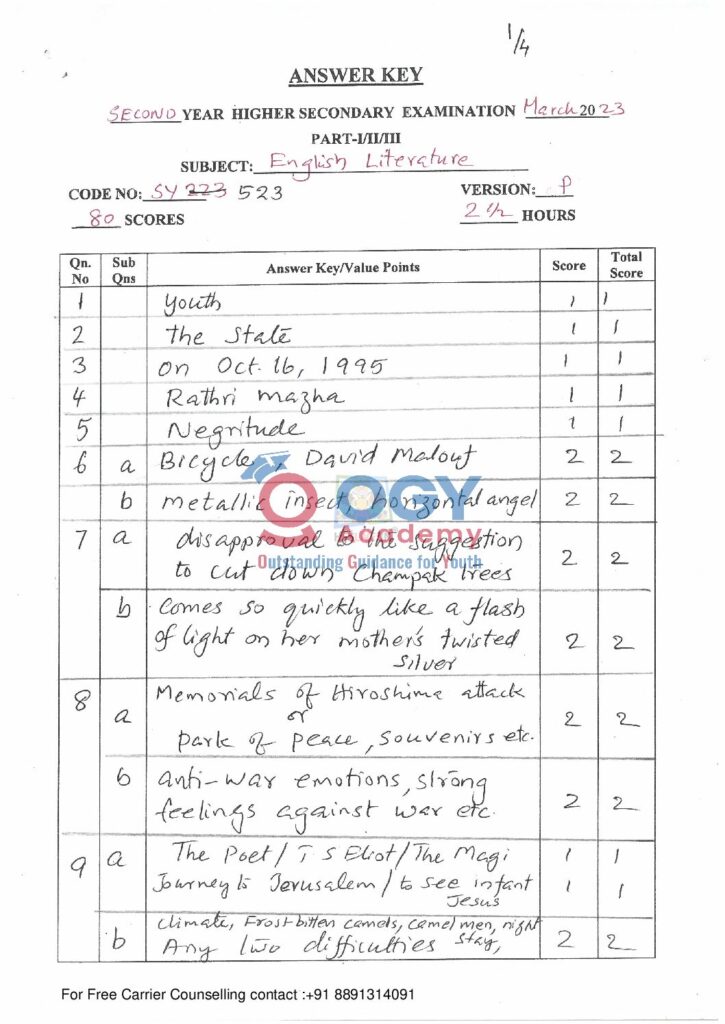 1/4
ANSWER KEY
SECOND YEAR HIGHER SECONDARY EXAMINATION March 2023
PART-I/II/III
SUBJECT: English Literature
CODE NO: SY 223 523 VERSION: P
80 SCORES 2 1/2 HOURS
Qn. No Sub Qns Answer Key/Value Points Score Total Score
1 Youth 1 1
2 The State 1 1
3 on Oct. 16, 1995 1 1
4 Rathri mazha 1 1
5 Negritude 1 1
6 a Bicycle, David Malouf 2 2
b metallic insect, horizontal angel 2 2
7 a disapproval to the suggestion
to cut down Champak trees 2 2
b Comes so quickly like a flash
of light on her mother's twisted
silver 2 2
8 a Memorials of Hiroshima attack
or
park of peace, souvenirs etc. 2 2
b anti-war emotions, strong
feelings against war etc. 2 2
9 a The Poet / T S Eliot / The Magi 1 1
Journey to Jerusalem / to see infant
Jesus 1 1
b climate, Frost bitten camels, camel men, night
stay,
Any two difficulties 2 2
OGY
Academy
Outstanding Guidance for Youth
For Free Carrier Counselling contact :+91 8891314091